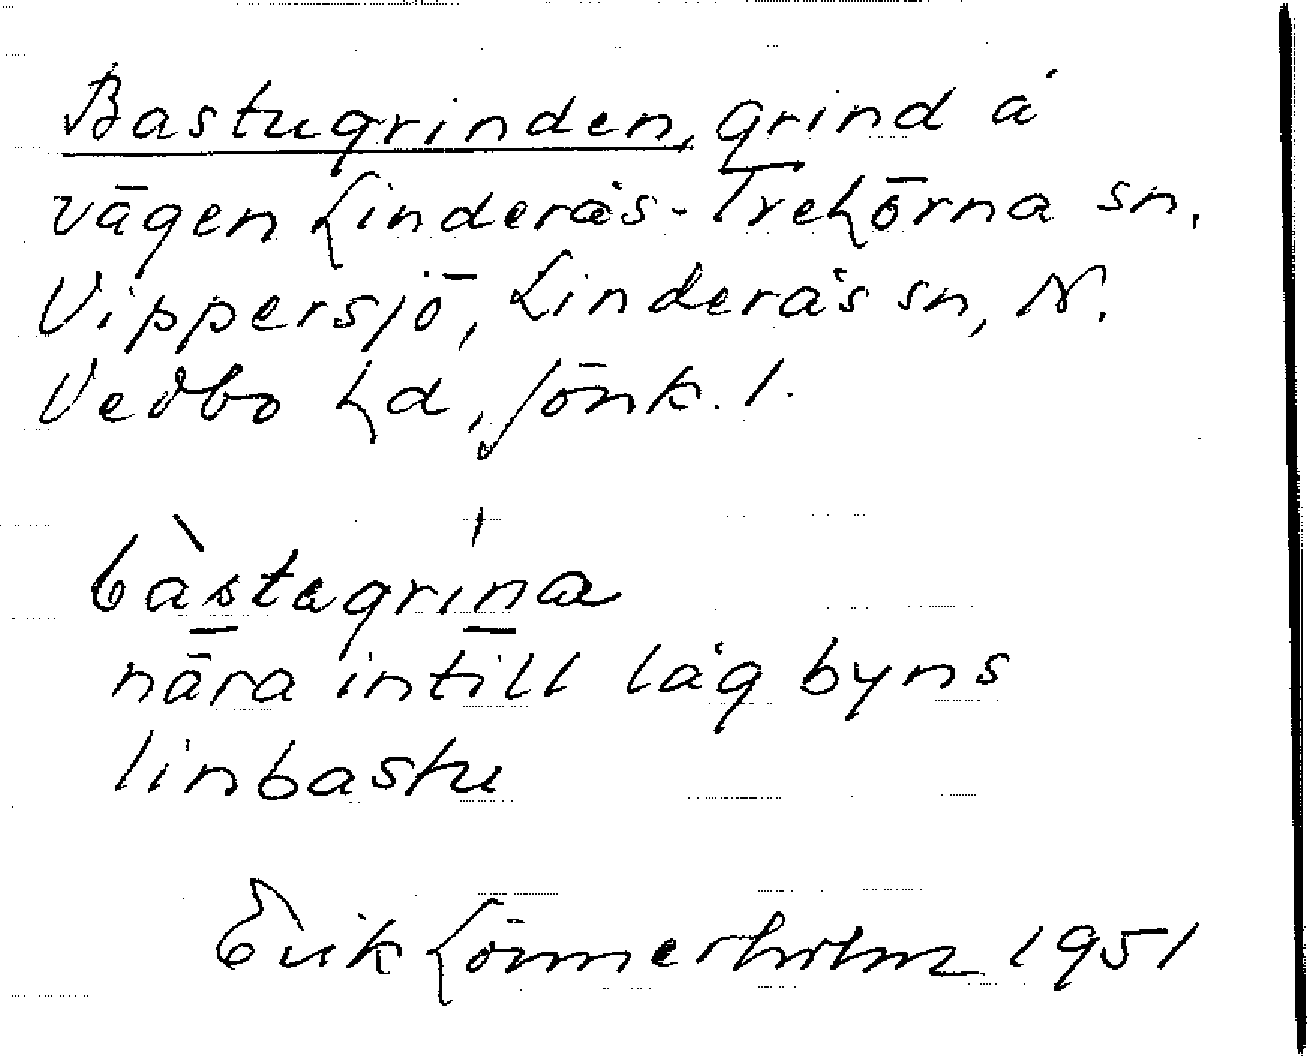 Bastugrinden, grind å
vägen Linderås-Trehörna sn,
Vippersjö, Linderås sn, N.
Vedbo hd, Jönk. l.
bàstagrina
nära intill låg byns
linbastu
Erik Lönnerholm 1951